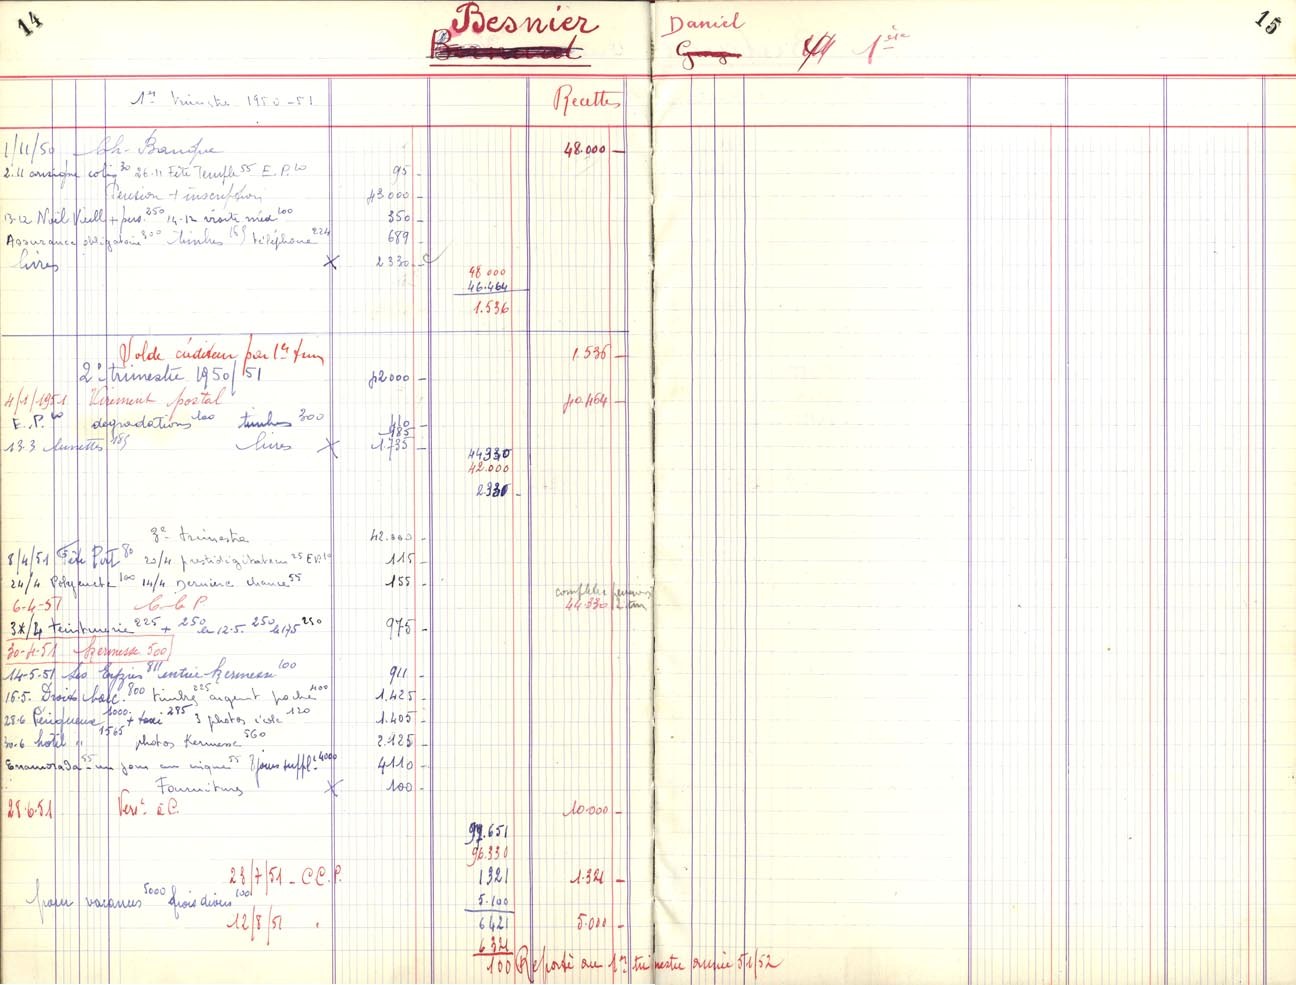 14
Besnier
Daniel
1ère
15
1er trimestre 1950-51
Recettes
1/11/50 Ch. Banque 48.000
2.11 consigne 30 26.11 Fête Temple 55 E.P. 10 95
Pension + inscription 43.000
13-12 Noël Vieill + pers. 250 14-12 visite méd 100 350
Assurance obligatoire 300 timbres 165 téléphone 224 689
livres X 2330
48 000
46.464
1.536
Solde créditeur par 1er trim 1.536
2e trimestre 1950/51 42000
4/1/1951 Virement postal 40.464
E.P. 10 dégradations 100 timbres 300 410
185
13.3 lunettes 185 livres X 1.735
44330
42.000
2330
3e trimestre 42.000
8/4/51 Fête 80 20/4 prestidigitateur 25 E.P. 10 115
24/4 Polyeucte 100 14/4 Dernière chance 55 155
6-4-51 C.C.P 44.330 2e trim
teinturerie 225 + 250 le 12-5. 250 250 975
30-4-51 Kermesse 500
14-5-51 Les Eyzies 811 entrée Kermesse 100 911
16-5. Droits bacc. 800 timbres 225 argent poche 400 1.425
28.6 Périgueux 1000 + taxi 285 3 photos 120 1.405
30.6 hôtel " 1565 photos Kermesse 560 2.125
Enamorada 55 un jour au cirque 55 jours suppl. 4000 4110
Fournitures X 100
28.6.51 Vert. C.C. 10.000
99.651
96.330
23/7/51 - C.C.P. 1321 1.321
pour vacances 5000 frais divers 100 5.100
12/8/51 " 6421 5.000
6321
100 Reporté au 1er trimestre année 51/52